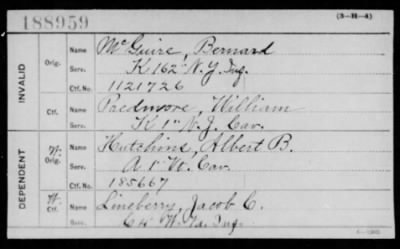 188959 (3-H-4)
INVALID
Orig. Name McGuire, Bernard
Serv. K 162" N.Y. Inf.
Ctf. No. 1121726
Ctf. Name William
Serv. K 1" N.J. Cav.
DEPENDENT
W. Orig. Name Hutchins, Albert B.
Serv. A 1" Vt. Cav.
Ctf. No. 185667
W. Ctf. Name Lineberry, Jacob C.
Serv. W. Va. Inf.